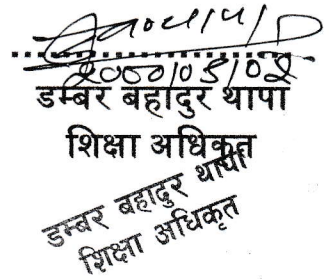 डम्बर बहादुर थापा
शिक्षा अधिकृत
डम्बर बहादुर थापा
शिक्षा अधिकृत